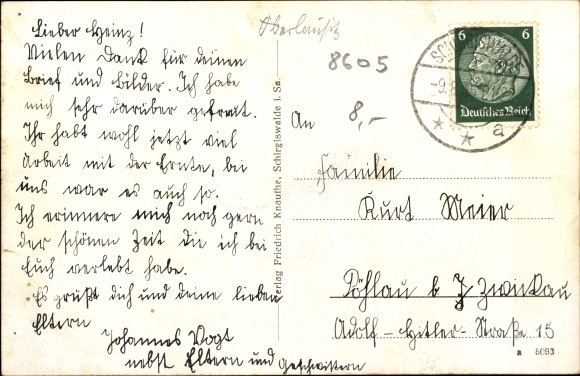 Lieber Heinz!
Vielen Dank für deinen
Brief und Bilder. Ich habe
mich sehr darüber gefreut.
Ihr habt wohl jetzt viel
Arbeit mit der Ernte, bei
uns war es auch so.
Ich erinnere mich noch gern
der schönen Zeit die ich bei
Euch verlebt habe.
Es grüßt dich und deine lieben
Eltern
Johannes Vogt
nebst Eltern und Geschwistern
Verlag Friedrich Knauthe, Schirgiswalde i. Sa.
Oberlausitz
8605
8,-
6 6
Deutsches Reich
a
An
Familie
Kurt Meier
Pöhlau b Zwickau
Adolf-Hitler-Straße 15
a 5093